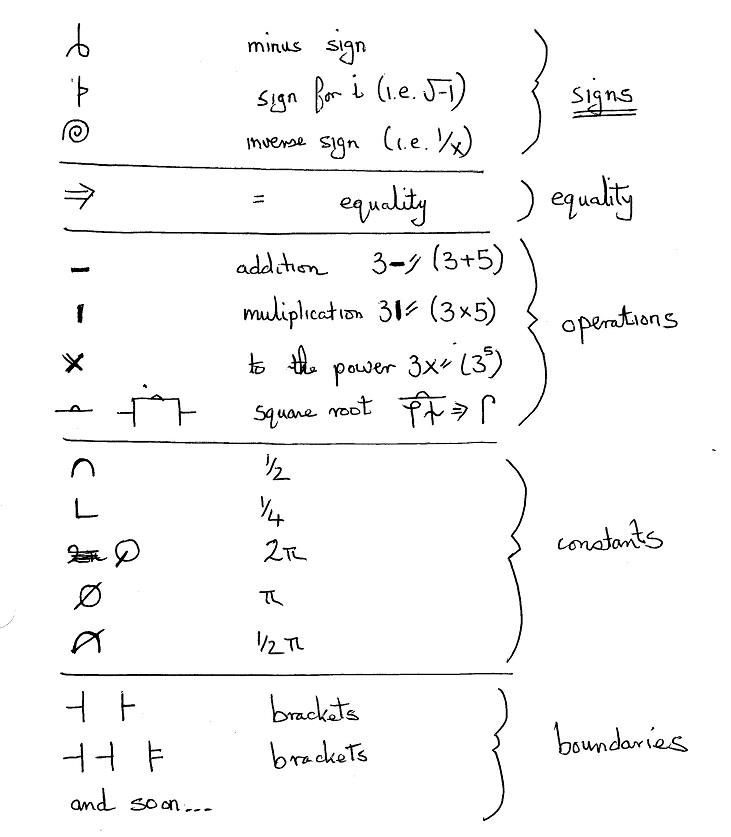 minus sign
sign for i (i.e. √-1)
inverse sign (i.e. 1/x)
signs
⇒ = equality
equality
addition 3 (3+5)
muliplication 3 (3×5)
to the power 3× (3⁵)
square root ⇒
operations
1/2
1/4
2π
π
1/2 π
constants
brackets
brackets
and soon...
boundaries